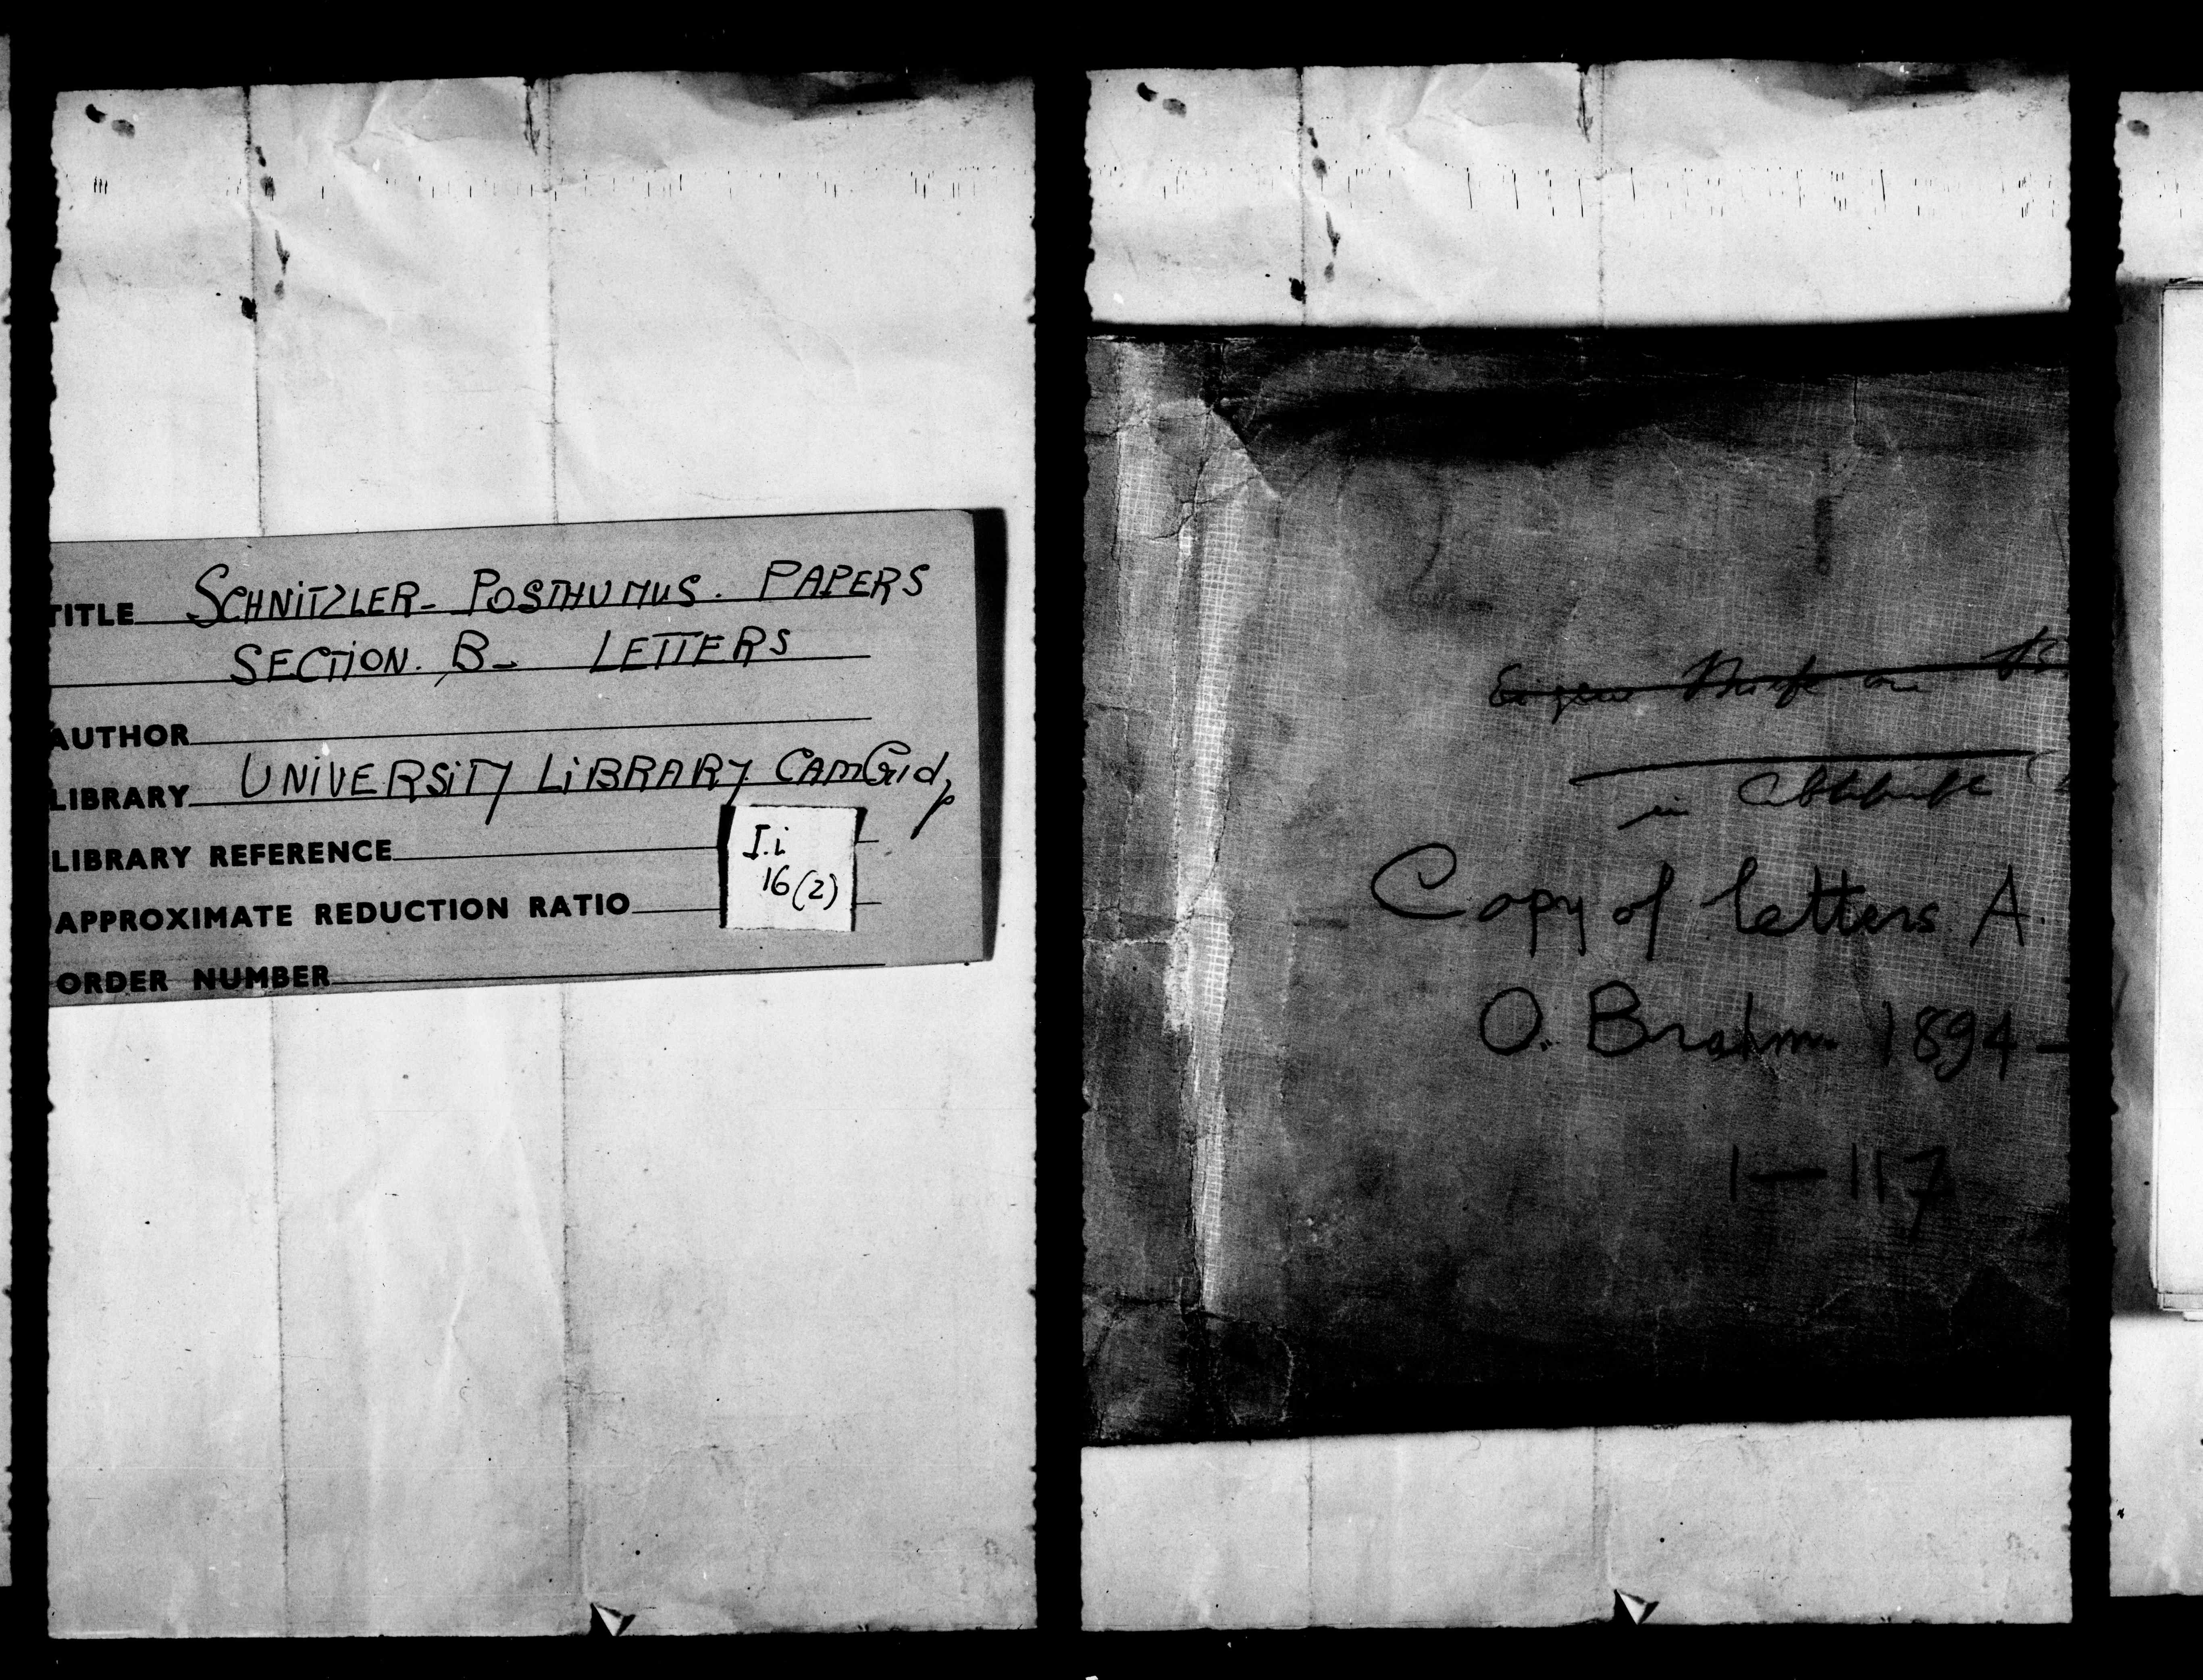 TITLE SCHNITZLER - POSTHUMUS. PAPERS
SECTION. B - LETTERS
AUTHOR
LIBRARY UNIVERSITY LIBRARY CAM
LIBRARY REFERENCE
I.i
16(2)
APPROXIMATE REDUCTION RATIO
ORDER NUMBER
Eigene Briefe an
in Abschrift
Copy of letters A.
O. Brahm. 1894 -
1 - 117